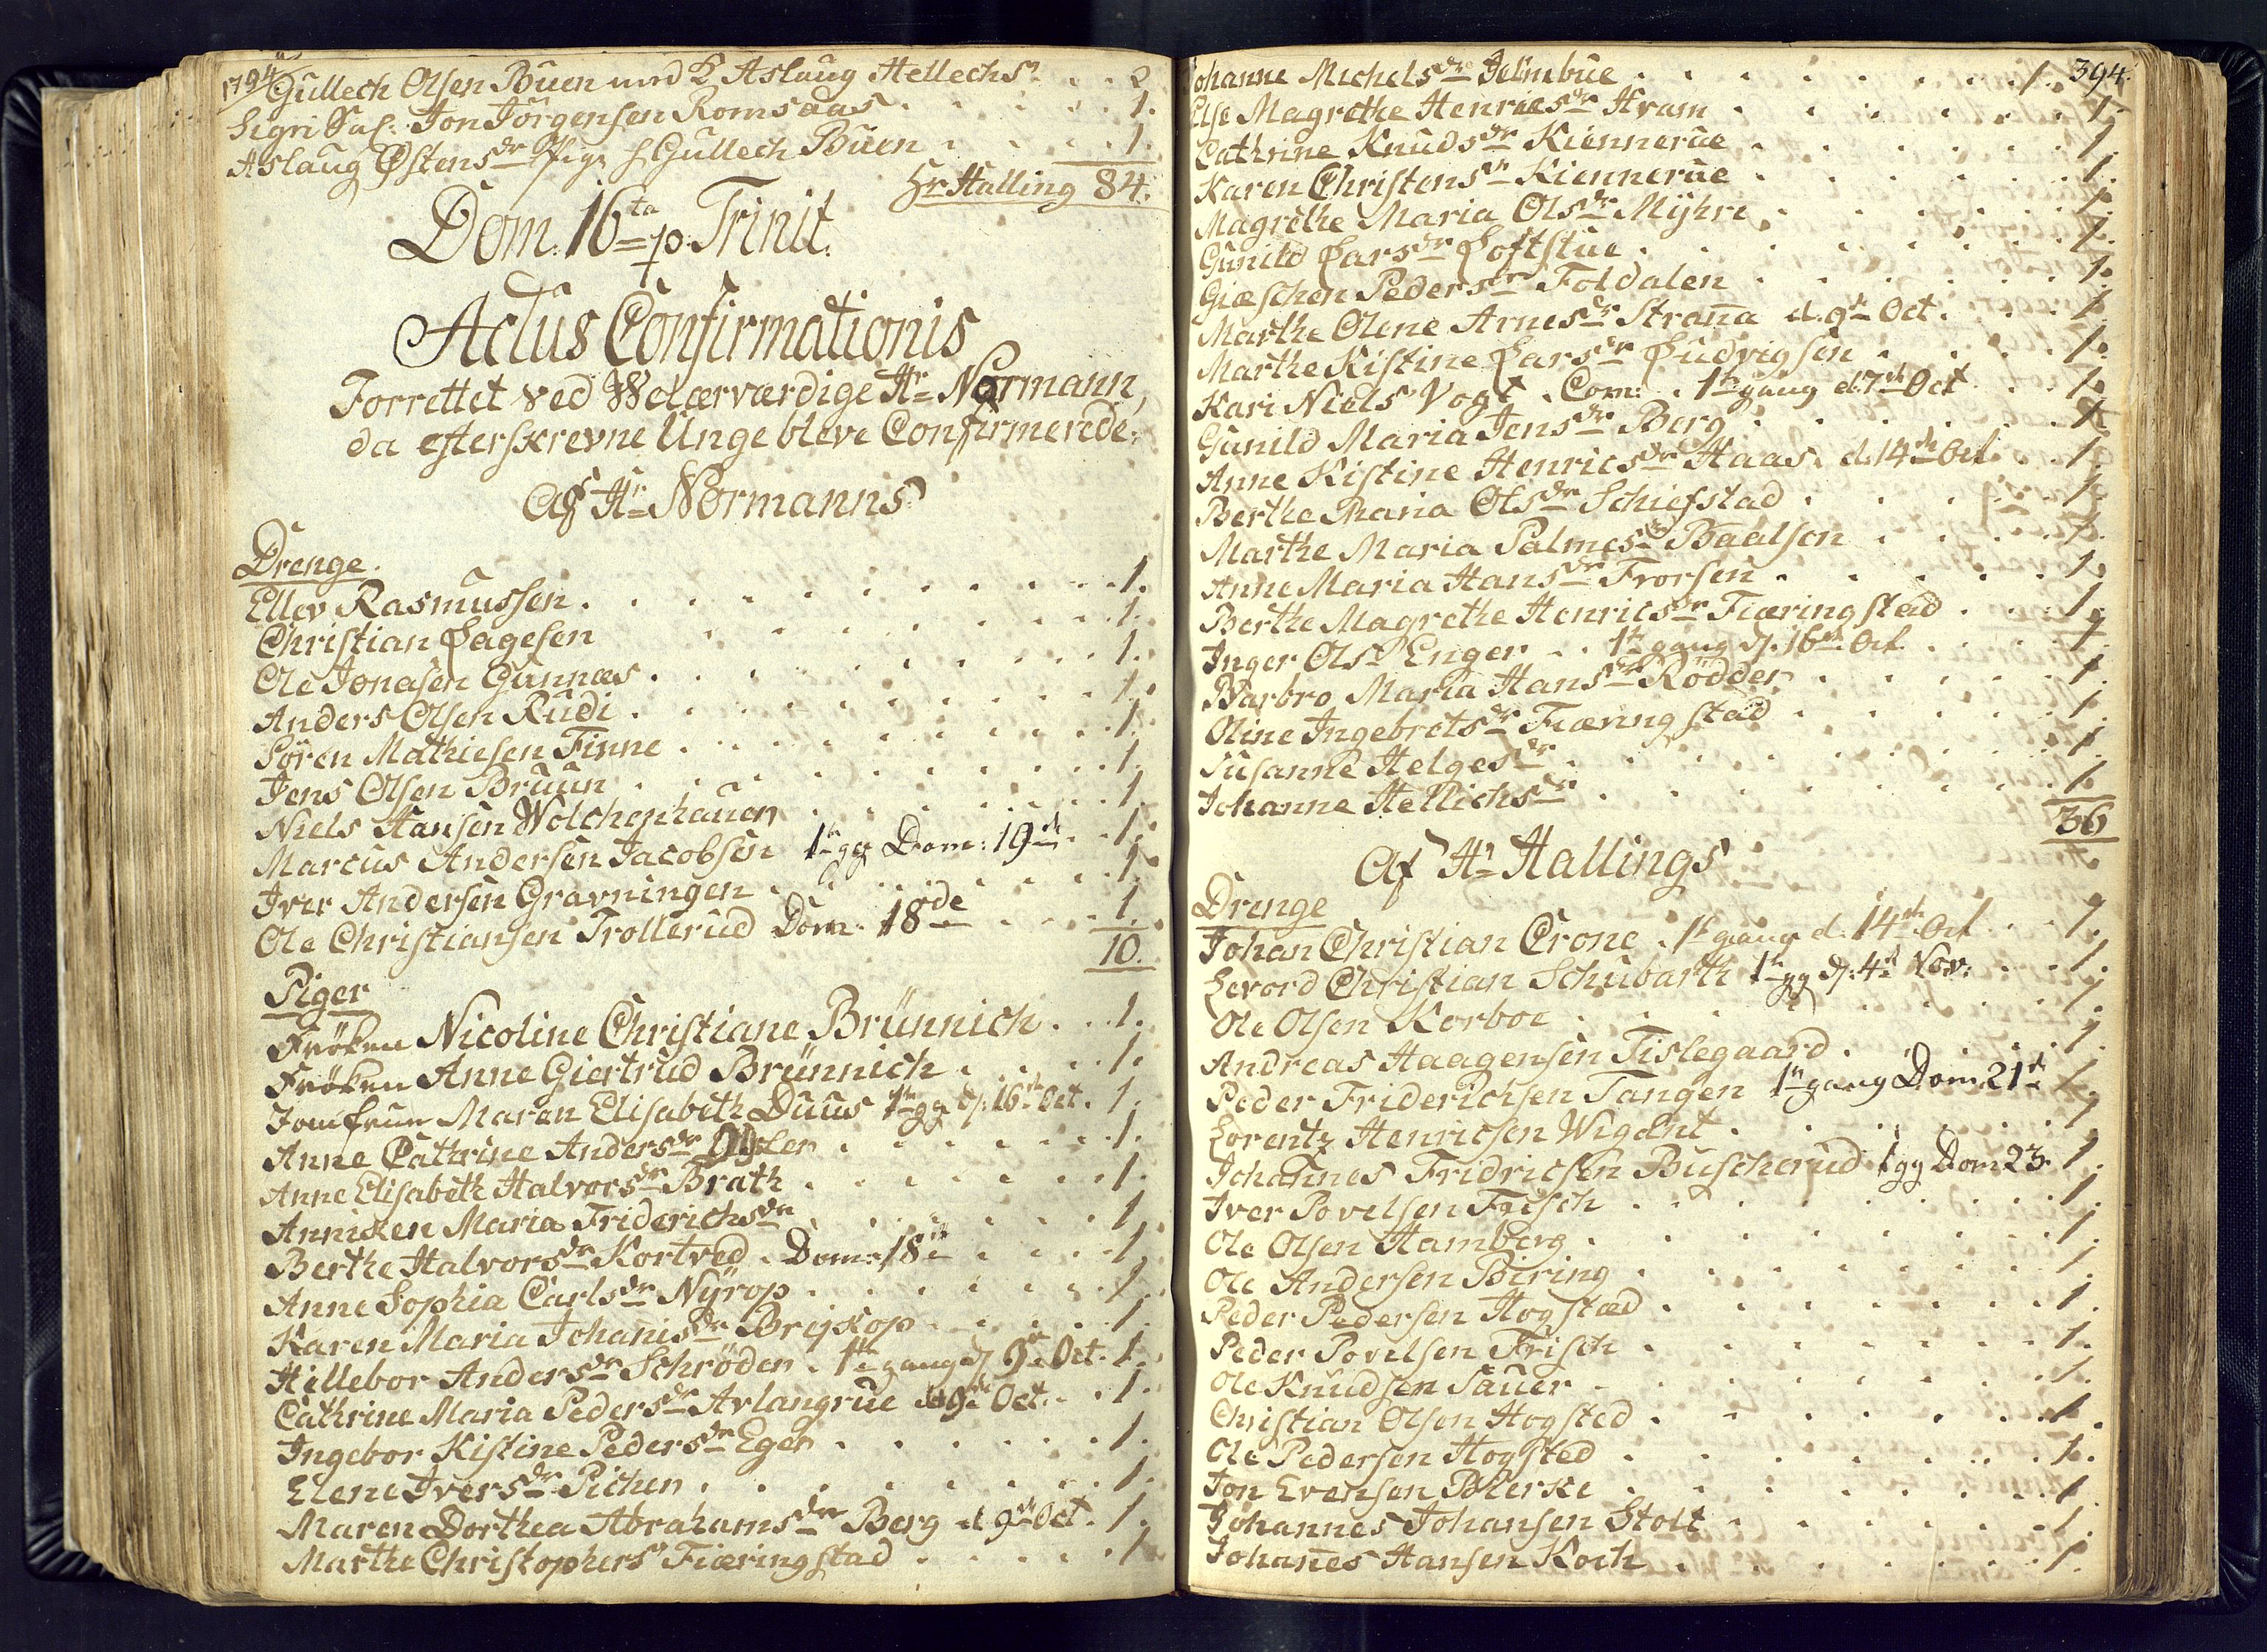 1794
Gullech Olsen Buen med K. Aslaug Hellechsr . . 2.
Sigri Sal: Jon Jörgensen Romsaas . . . . 1.
Aslaug Østensdr Pige f Gullech Buen . . . . 1.
Hr Halling 84.
Dom: 16ta p. Trinit.
Actus Confirmationis
Forrettet ved Welærværdige Hr Normann,
da efterskrevne Unge bleve Confirmerede.
Af Hr Normanns
Drenge.
Ellev Rasmussen . . . . 1.
Christian Lagesen . . . . 1.
Ole Jonasen Gunnæs . . . . 1.
Anders Olsen Rudi . . . . 1.
Sören Mathiesen Finne . . . . 1.
Jens Olsen Bruun . . . . 1.
Niels Hansen Wolchenhauer . . . . 1.
Marcus Andersen Jacobsen 1te gg Dom: 19de . 1.
Iver Andersen Gravningen . . . . 1.
Ole Christiansen Trollerud Dom: 18de . . . 1.
10.
Piger
Fröken Nicoline Christiane Brünnich . . 1.
Fröken Anne Giertrud Brünnich . . . 1.
Jomfrue Maren Elisabeth Duus 1te gg d. 16de Oct. 1.
Anne Cathrine Andersdr . . . . 1.
Anne Elisabeth Halvorsdr Brath . . . . 1.
Annicken Maria Friderichsdr . . . . 1.
Berthe Halvorsdr Kortved . Dom: 18de . . . 1.
Anne Sophia Carlsdr Nyrop . . . . 1.
Karen Maria Johanisdr Bryskop . . . . 1.
Hillebor Andersdr Schrøder . 1te gang d 9de Oct. 1.
Cathrine Maria Pedersdr Avlangrue d 9de Oct. . 1.
Ingebor Kistine Pedersdr Eger . . . . 1.
Elene Iversdr Pichen . . . . 1.
Maren Dorthea Abrahamsdr Berg d 9de Oct. 1.
Marthe Christophers Fiæringstad . . . . 1.
394.
Johanne Michelsdr Jelmbue . . . . 1.
Else Magrethe Henricsdr Hvam . . . . 1.
Cathrine Knudsdr Kiennerue . . . . 1.
Karen Christensdr Kiennerue . . . . 1.
Magrethe Maria Olsdr Myhre . . . . 1.
Gunild Larsdr Loftstue . . . . 1.
Giæschen Pedersdr Foldalen . . . . 1.
Marthe Olene Arnesdr Strana d. 9de Oct. . . 1.
Marthe Kistine Larsdr Ludvigsen . . . 1.
Kari Niels Vogt . Com: . 1te gang d. 7de Oct . . 1.
Gunild Maria Jensdr Berg . . . . 1.
Anne Kistine Henricsdr Haas. d. 14de Oct. . 1.
Berthe Maria Olsdr Schiefstad . . . . 1.
Marthe Maria Palmesdr Baalsen . . . . 1.
Anne Maria Hansdr Frorsen . . . . 1.
Berthe Magrethe Henricsdr Fiæringstad . . . 1.
Inger Olsdr Enger . . 1te gang d. 16de Oct. . . 1.
Barbro Maria Hansdr Rödder . . . . 1.
Oline Ingebretsdr Fiæringstad . . . . 1.
Susanne Helgesdr . . . . 1.
Johanne Hellichsdr . . . . 1.
36
Af Hr Hallings
Drenge
Johan Christian Crone . 1te gang d. 14de Oct . . 1.
Levord Christian Schubarth 1te gg d. 4de Nov: . . 1.
Ole Olsen Korboe . . . . 1.
Andreas Haagensen Tislegaard . . . . 1.
Peder Friderichsen Tangen 1te gang Dom 21de 1.
Lorentz Henricsen Wigant . . . . 1.
Johannes Fridricsen Buscherud 1 gg Dom 23. 1.
Iver Povelsen Frisch . . . . 1.
Ole Olsen Hamberg . . . . 1.
Ole Andersen Biring . . . . 1.
Peder Pedersen Hogstad . . . . 1.
Peder Povelsen Frisch . . . . 1.
Ole Knudsen Sauer . . . . 1.
Christian Olsen Hogsted . . . . 1.
Ole Pedersen Hogsted . . . . 1.
Jon Evensen Blerke . . . . 1.
Johannes Johansen Stolt . . . . 1.
Johanes Hansen Koch . . . . 1.